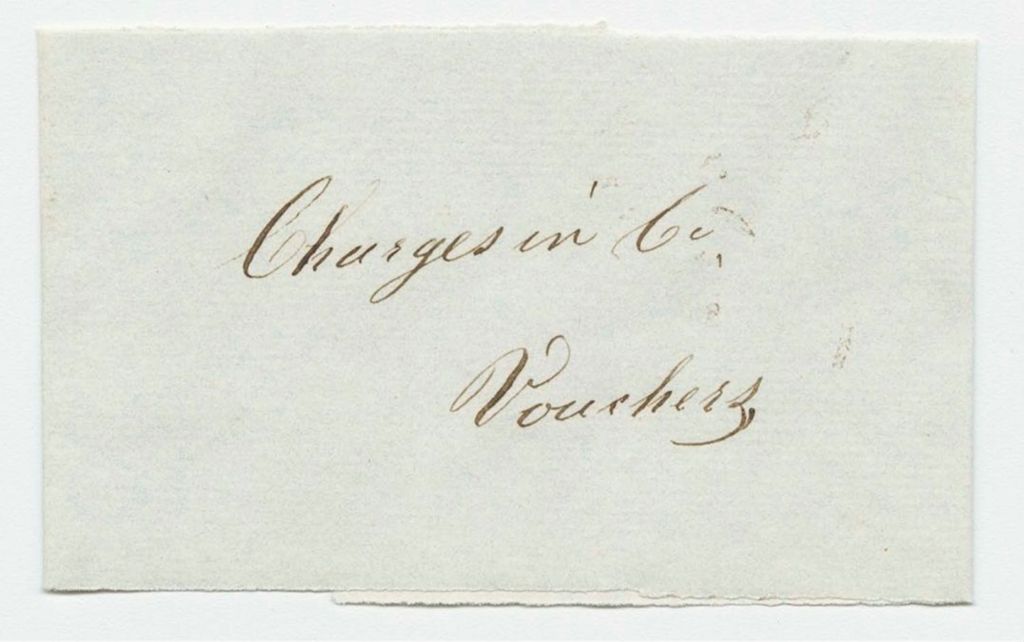 Charges in 6.
Vouchers